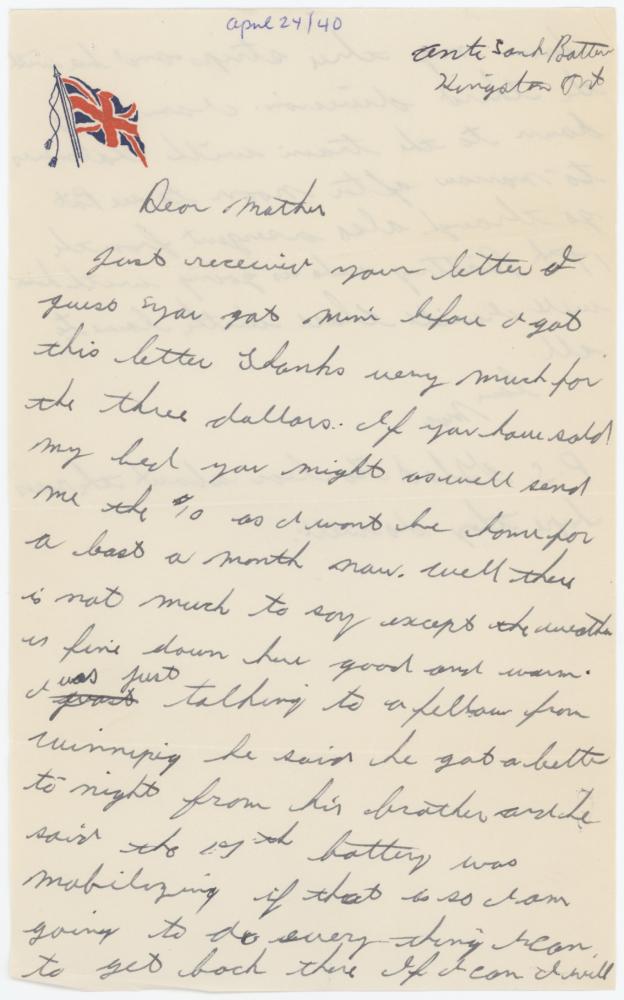 April 24/40
Anti Tank Battery
Kingston Ont
Dear Mother
Just received your letter I
guess you got mine before I got
this letter Thanks very much for
the three dollars. If you have sold
my bed you might as well send
me the as I wont be home for
a bast a month now. Well there
is not much to say except the weather
is fine down here good and warm.
I was just talking to a fellow from
Winnipeg he said he got a letter
to night from his brother and he
said the th battery was
mobilizing if that is so I am
going to do every thing I can
to get back there If I can I will